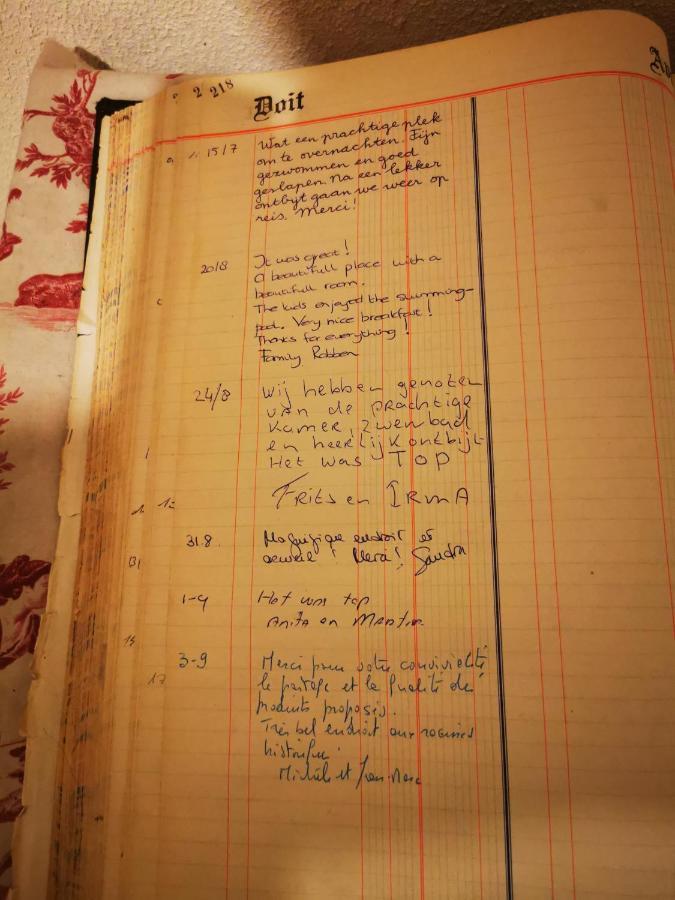 2 218
Doit
15/7 Wat een prachtige plek
om te overnachten. Fijn
gezwommen en goed
geslapen. Na een lekker
ontbijt gaan we weer op
reis. Merci!
20/8 It was great!
A beautifull place with a
beautifull room.
The kids enjoyed the swimming-
pool. Very nice breakfast!
Thanks for everything!
Family Robben
24/8 Wij hebben genoten
van de prachtige
kamer, zwembad
en heerlijk ontbijt
Het was TOP
Frits en IRMA
31.8. Magnifique endroit et
acceuil! Merci! Sandra
1-9 Het was top
Anita en Martin
3-9 Merci pour votre convivialité
le partage et la qualité des
produits proposés.
Très bel endroit aux racines
historique.
Michèle et Jean-Marc